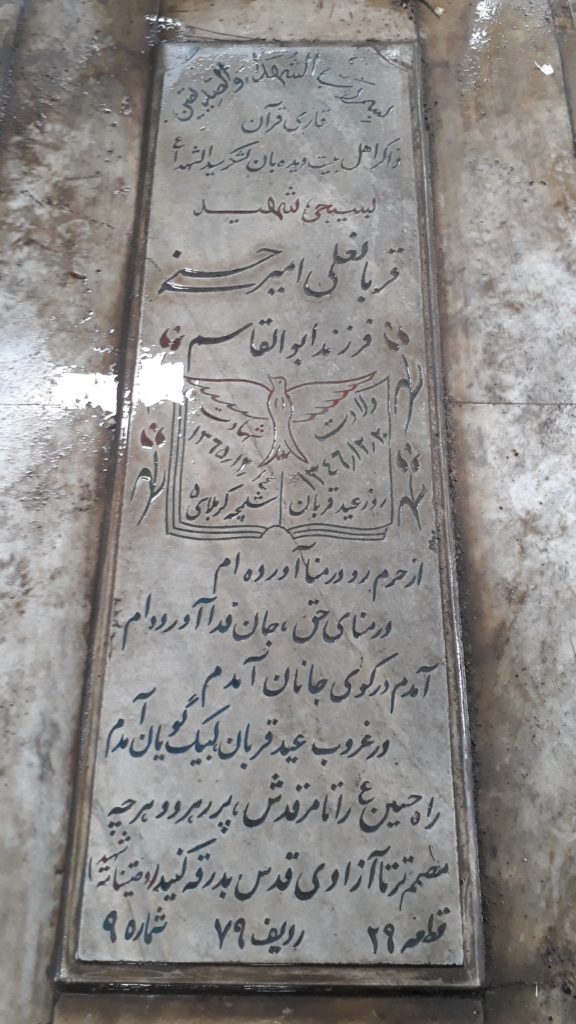 بسم رب الشهداء والصدیقین
قاری قرآن
ذاکر اهل بیت و دیده بان لشکر سیدالشهدا ع
بسیجی شهید
قربانعلی امیرحسنی
فرزند ابوالقاسم
ولادت
۱۳۴۶/۱۲/۲۰
روز عید قربان
شهادت
شلمچه کربلای ۵
از حرم رو در منا آورده ام
در منای حق، جان فدا آورده ام
آمدم در کوی جانان آمدم
در غروب عید قربان لبیک گویان آمدم
راه حسین ع را تا مرقدش، پر رهرو و هر چه
مصمم تر تا آزادی قدس بدرقه کنید (وصیتنامه شهید)
قطعه ۲۹ ردیف ۷۹ شماره ۹